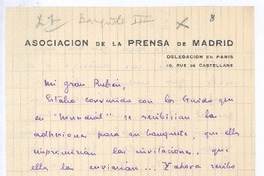 Banquete
8
ASOCIACION DE LA PRENSA DE MADRID
DELEGACION EN PARIS
10, RUE DE CASTELLANE
Mi gran Rubén,
Estaba convenido con los Guido que
en "Mundial" se recibirían las
adhesiones para su banquete, que ellos
imprimirían las invitaciones, que
ellos las enviarían... Y ahora recibo